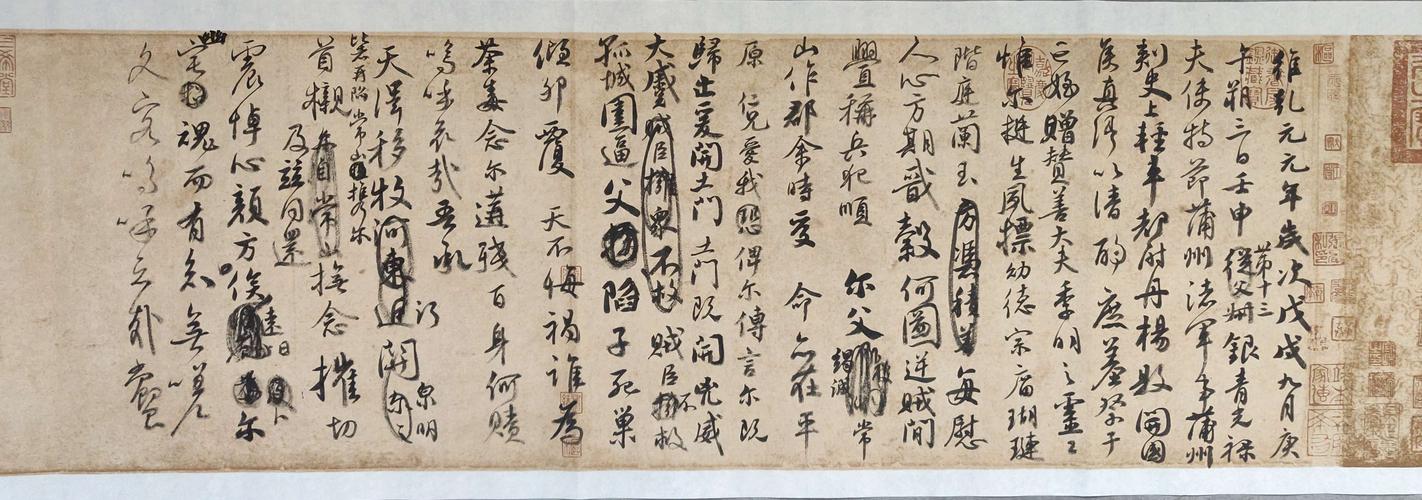 維乾元元年歲次戊戌九月庚
午朔三日壬申第十三從父叔銀青光祿
夫使持節蒲州諸軍事蒲州
刺史上輕車都尉丹楊縣開國
侯真卿以清酌庶羞祭于
亡姪贈贊善大夫季明之靈曰
惟爾挺生夙標幼德宗廟瑚璉
階庭蘭玉方憑積善每慰
人心方期戩穀何圖逆賊間
釁稱兵犯順爾父竭誠常
山作郡余時受命亦在平
原仁兄愛我恐俾爾傳言爾既
歸止爰開土門土門既開凶威
大蹙賊臣擁眾不救賊臣不救
孤城圍逼父陷子死巢
傾卵覆天不悔禍誰為
荼毒念爾遘殘百身何贖
嗚呼哀哉吾承
天澤移牧河東近河關泉明
比者再陷常山攜爾
首櫬及茲同還亦自常山撫念摧切
震悼心顏方俟遠日卜爾
幽宅魂而有知無嗟
久客嗚呼哀哉尚饗